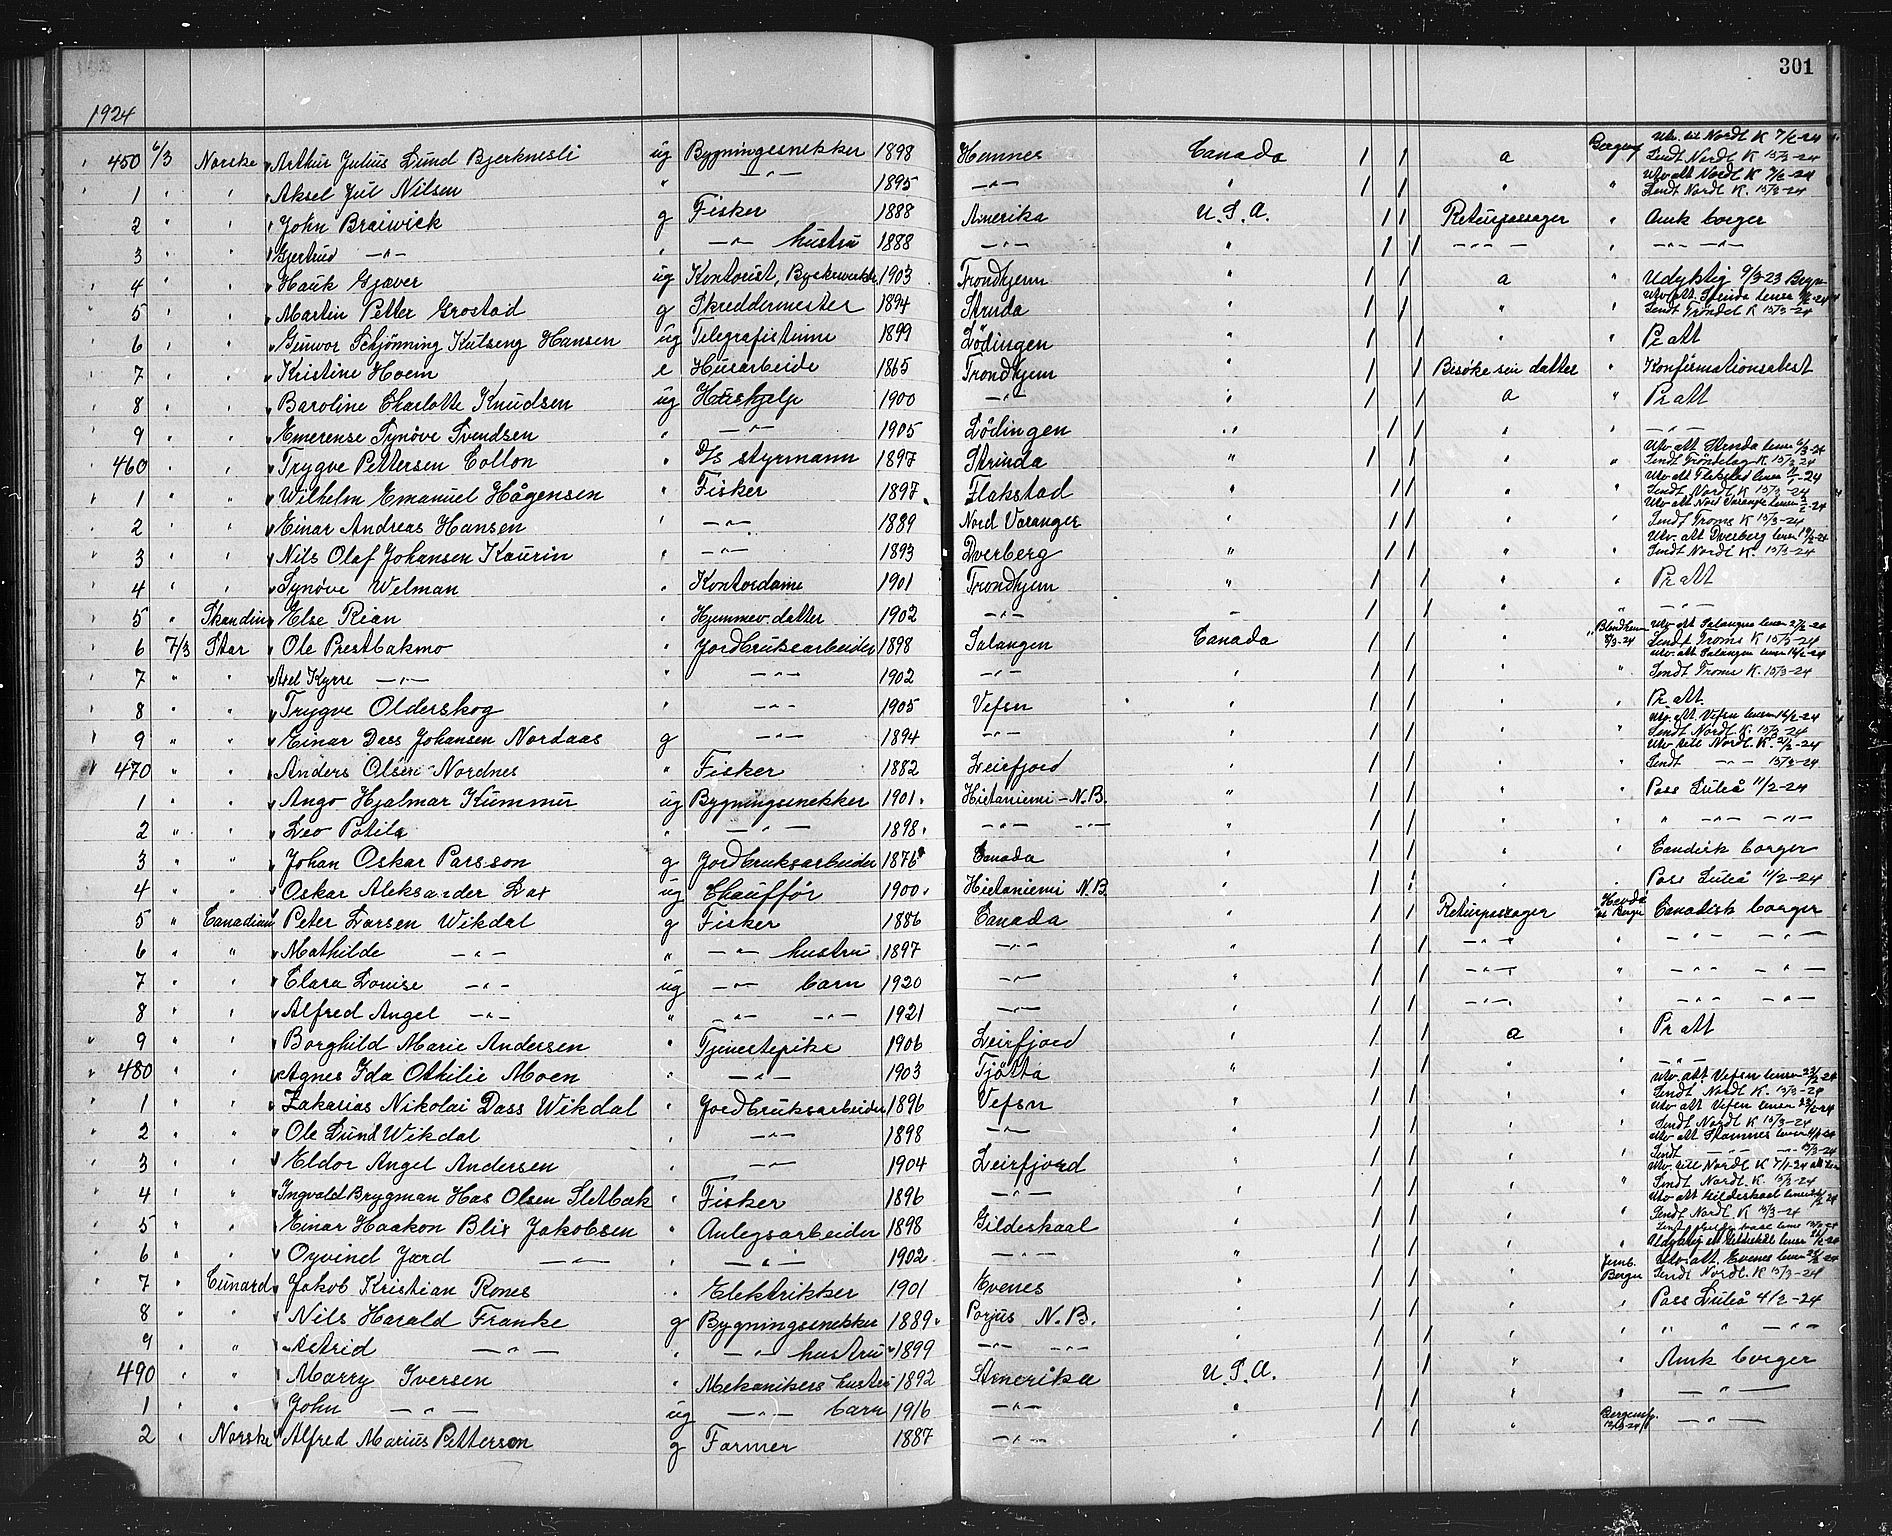 301
1924
450 6/3 Norske " Arthur Julius Lund Bjerknesli ug Bygningssnekker 1898 Hemnes Canada / / a Bergensf Utv. til Nordl K 7/2-24 Sendt Nordl K 15/3-24
1 " " " Aksel Jul Nilsen " —"— 1895 —"— " / / " " Utv att Nordl K 7/2-24 Sendt Nordl K. 15/3-24
2 " " " John Braiwick g Fisker 1888 Amerika U.S.A. / / Returpassager " Amk borger
3 " " " Gjertrud —"— " —"— hustru 1888 —"— " / / —"— " —"— —"—
4 " " " Hauk Gjæver ug Kontorist, 1903 Trondhjem " / / a " Udyktig 9/3-23
5 " " " Martin Petter Grostad g Skreddermester 1894 Strinda " / / " " Utv att Strinda lensm Sendt Trøndel K 15/3-24
6 " " " Gunvor Schjønning Kulseng Hansen ug Telegrafistinne 1899 Lödingen " / / " " Pr att
7 " " " Kristine Hoem e Husarbeide 1865 Trondhjem " / / Besøke sin datter " Konfirmationsatest
8 " " " Baroline Charlotte Knudsen ug Hushjelp 1900 —"— " / / a " Pr att
9 " " " Emerense Synöve Svendsen " —"— 1905 Lödingen " / / " " —"—
460 " " " Trygve Pettersen Collon " D/S styrmann 1897 Strinda " / / " " Utv att Strinda lensm 6/3-24 Sendt Tröndelag K 15/3 24
1 " " " Wilhelm Emanuel Hågensen " Fisker 1897 Flakstad " / / " " Utv att Flakstad lensm Sendt Nordl K 15/3-24
2 " " " Einar Andreas Hansen " —"— 1889 Nord Varanger " / / " " Utv att Nord Varanger lensm Sendt Troms K 15/3-24
3 " " " Nils Olaf Johansen Kaurin " —"— 1893 Dverberg " / / " " Utv. att Dverberg lensm Sendt Nordl K. 15/3-24
4 " " " Synöve Welman " Kontordame 1901 Trondhjem " / / " " Pr att
5 " Skandin " Else Rian " Hjemmev. datter 1902 —"— " / / " " —"—
6 7/3 Star " Ole Prestbakmo " Jordbruksarbeider 1898 Salangen Canada / / " " Blendheim 8/3-24 Utv. att Salangen lensm 21/2-24 Sendt Troms K 15/3-24
7 " " " Axel Kyrre —"— " —"— 1902 —"— " / / " " Utv. att Salangen lensm 16/2-24 Sendt Troms K. 15/3-24
8 " " " Trygve Olderskog " —"— 1905 Vefsn " / / " " Pr att.
9 " " " Einar Dass Johansen Nordaas g —"— 1894 —"— " / / " " att. Vefsn lensm 16/2-24 Sendt Nordl K 15/3-24
470 " " " Anders Olsen Nordnes " Fisker 1882 Leirfjord " / / " " Utv till Nordl. K. 21/2-24 Sendt —"— 15/3-24
1 " " " Ango Hjalmar Kummu ug Bygningssnekker 1901 Hietaniemi - N.B. " / / " " Pass Luleå 11/2-24
2 " " " Leo Potila " —"— 1898 —"— —"— " / / " " " —"— —"—
3 " " " Johan Oskar Parsson g Jordbruksarbeider 1876 Canada " / / " " Candisk borger
4 " " " Oskar Aleksander Lax ug Chaufför 1900 Hietaniemi N.B " / / " " Pass Luleå 11/2-24
5 " Canadian " Peter Larsen Wikdal g Fisker 1886 Canada " / / Returpassager " Canadisk borger
6 " " " Mathilde —"— " —"— hustru 1897 —"— " / / —"— " —"— —"—
7 " " " Clara Louise —"— ug —"— barn 1920 —"— " / / —"— " —"— —"—
8 " " " Alfred Angel —"— " —"— —"— 1921 —"— " / / —"— " —"— —"—
9 " " " Borghild Marie Andersen " Tjenestepike 1906 Leirfjord " / / a " Pr att
480 " " " Agnes Ida Othilie Moen " —"— 1903 Tjötta " / / " " —"—
1 " " " Zakarias Nikolai Dass Wikdal " Jordbruksarbeider 1896 Vefsn " / / " " Utv. att Vefsn lensm 23/2-24 Sendt Nordl K. 15/3-24
2 " " " Ole Lund Wikdal " —"— 1898 —"— " / / " " Utv att Vefsn lensm 23/2-24 Sendt Nordl K 15/3-24
3 " " " Eldor Angel Andersen " —"— 1904 Leirfjord " / / " " Utv att Stamnes lensm Sendt —"— 15/3-24
4 " " " Ingvald Brygman Has Olsen Sletbak " Fisker 1896 —"— " / / " " Utv. till Nordl K 7/1-24 Sendt Nordl. K. 15/3-24
5 " " " Einar Haakon Blix Jakobsen " Anlegsarbeider 1898 Gildeskaal " / / " " Utv att Gildeskaal lensm Sendt Nordl K 15/3-24
6 " " " Oyvind Jord —"— " —"— 1902 —"— " / / " " Udyktig
7 " Cunard " Jakob Kristian Rones " Elektrikker 1901 Evenes " / / " Jernb. Bergen Utv. att. Evenes lensm 23/2-24 Sendt Nordl. K 15/3-24
8 " " " Nils Harald Franke g Bygningssnekker 1889 Porjus N.B. " / / " " Pass Luleå 4/2-24
9 " " " Astrid —"— " —"— hustru 1899 —"— —"— " / / " " " " —"—
490 " " " Marry Iversen " Mekanikers hustru 1892 Amerika U.S.A. / / " " Amk borger
1 " " " John —"— ug —"— barn 1916 —"— " / / " " —"—
2 " Norske " Alfred Marius Petterson g Farmer 1887 —"— " / / " Bergensf. —"—